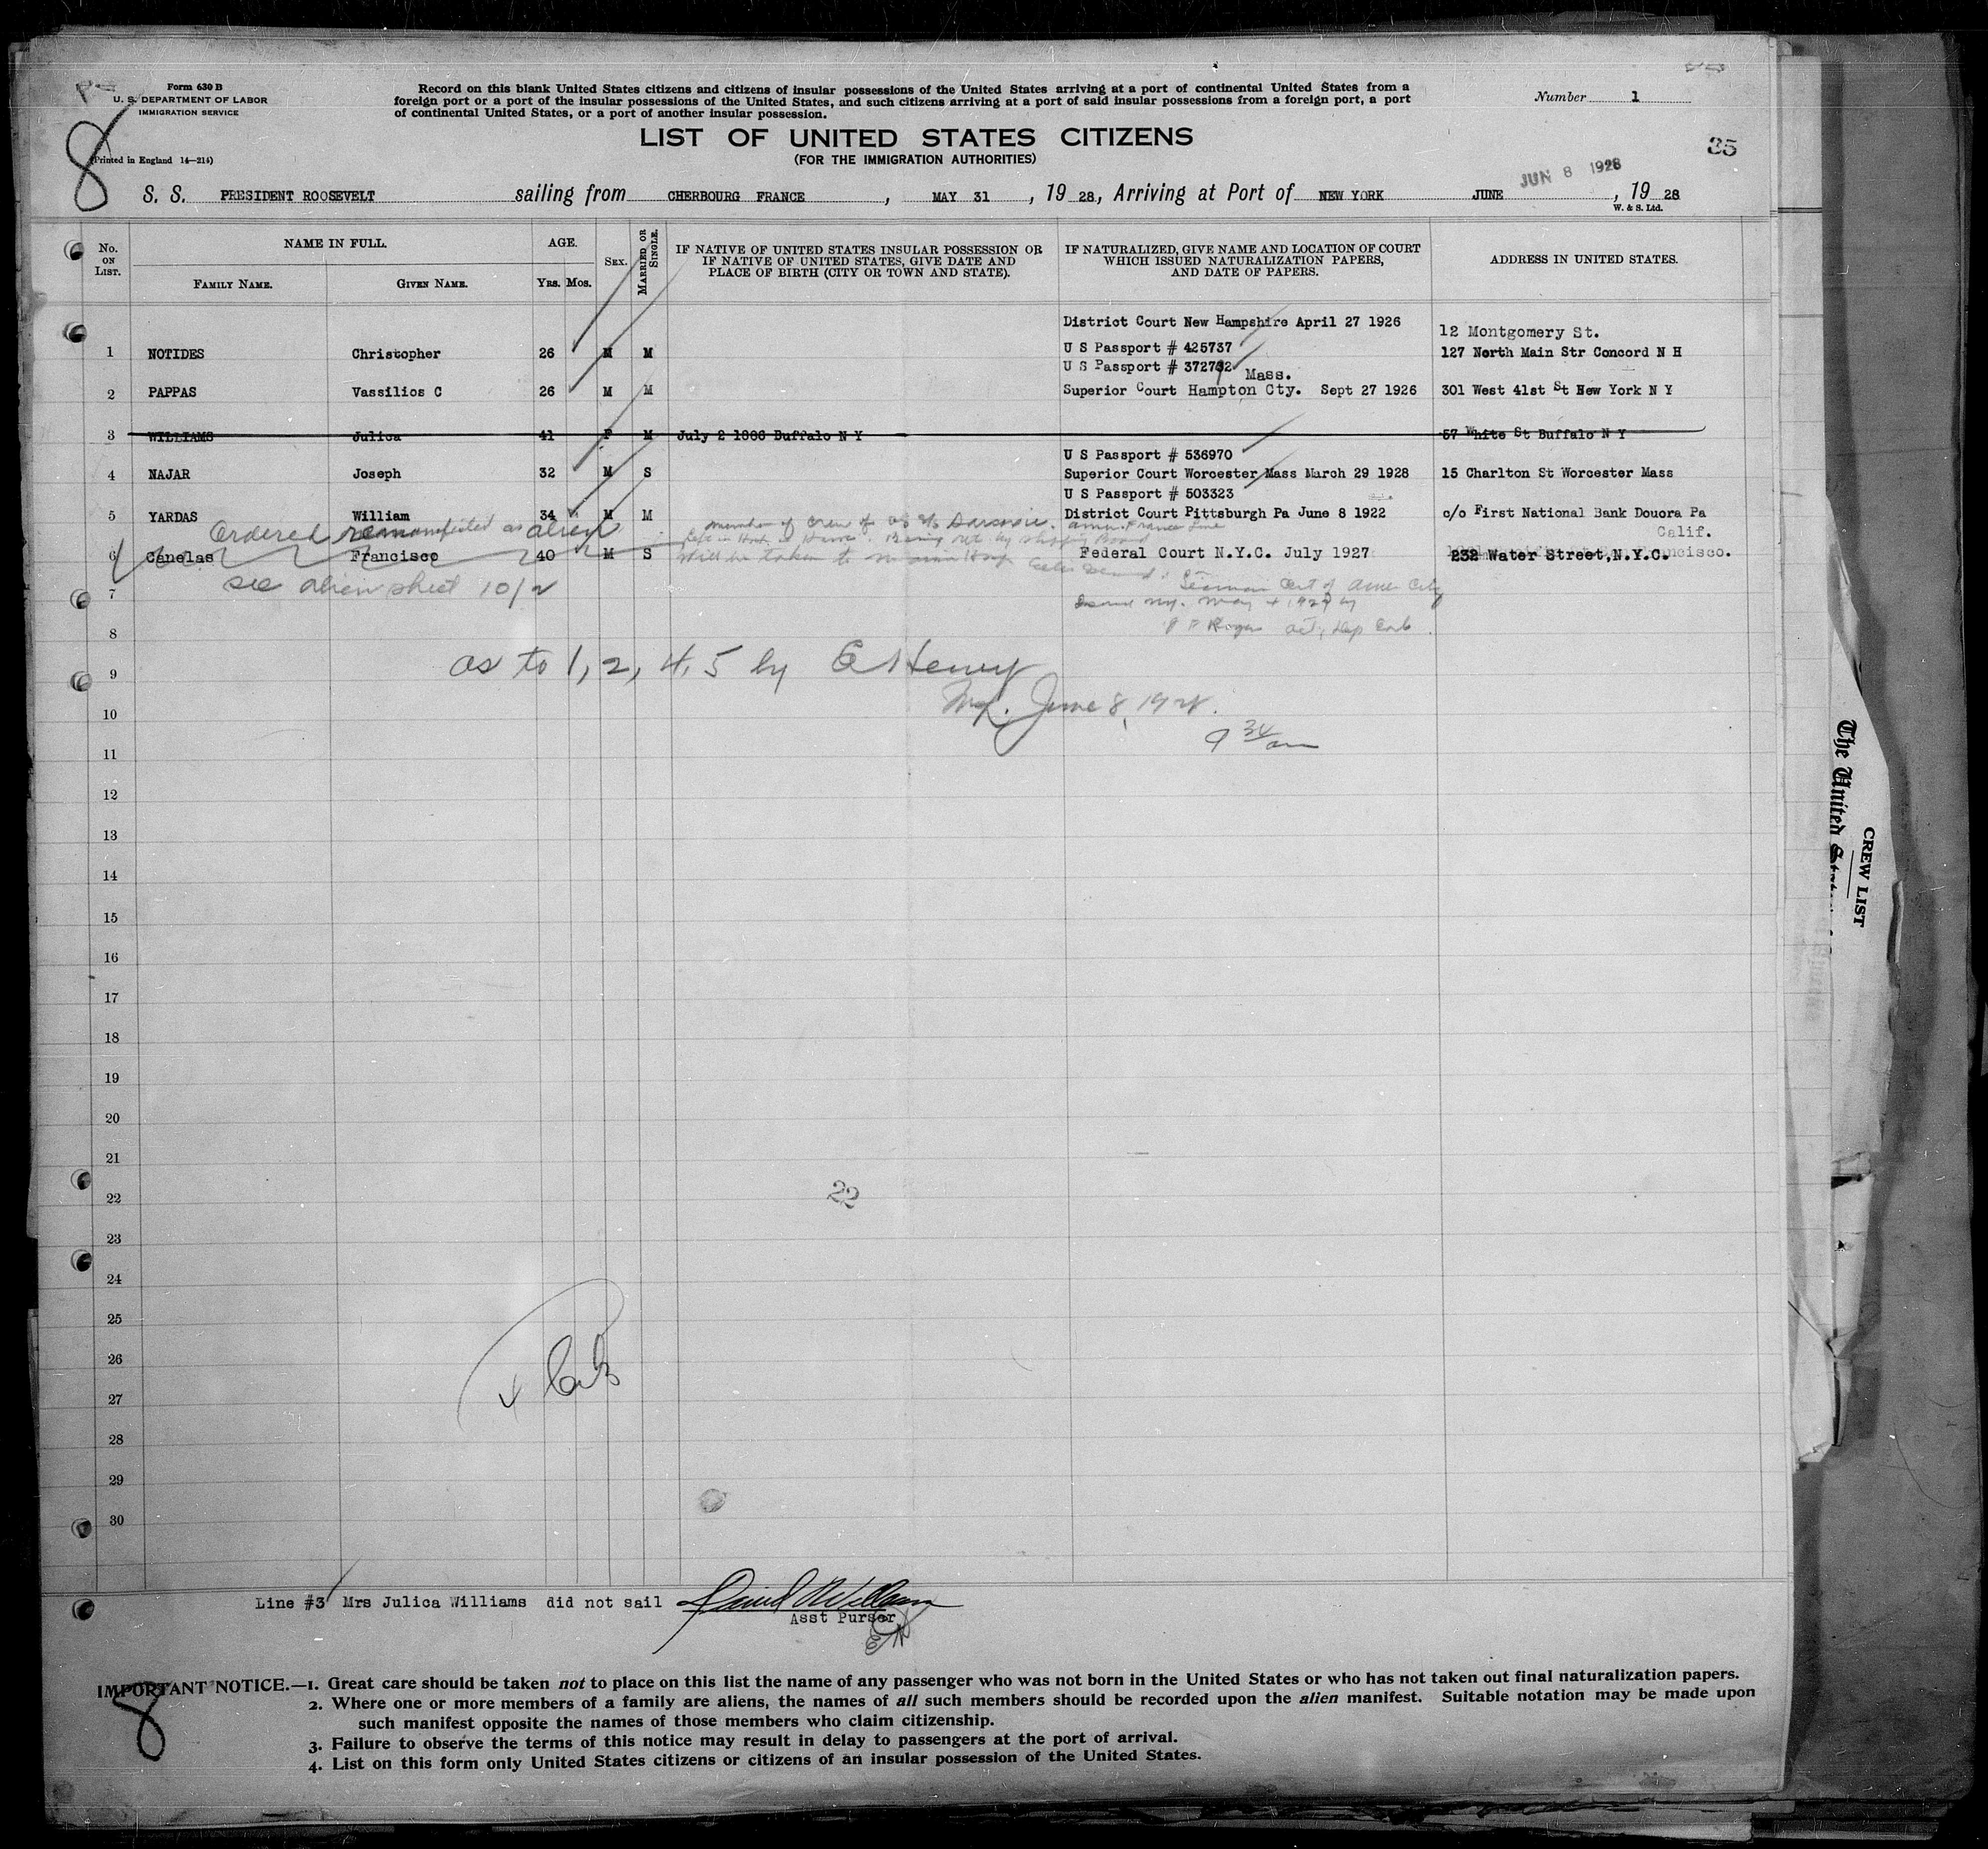 Form 630 B
U. S. DEPARTMENT OF LABOR
IMMIGRATION SERVICE
(Printed in England 14—214)
8
Record on this blank United States citizens and citizens of insular possessions of the United States arriving at a port of continental United States from a
foreign port or a port of the insular possessions of the United States, and such citizens arriving at a port of said insular possessions from a foreign port, a port
of continental United States, or a port of another insular possession.
Number 1
LIST OF UNITED STATES CITIZENS
(FOR THE IMMIGRATION AUTHORITIES)
35
JUN 8 1928
S. S. PRESIDENT ROOSEVELT sailing from CHERBOURG FRANCE, MAY 31, 19 28, Arriving at Port of NEW YORK JUNE, 19 28
W. & S. Ltd.
No. ON LIST. NAME IN FULL. AGE. SEX. MARRIED OR SINGLE. IF NATIVE OF UNITED STATES INSULAR POSSESSION OR IF NATIVE OF UNITED STATES, GIVE DATE AND PLACE OF BIRTH (CITY OR TOWN AND STATE). IF NATURALIZED, GIVE NAME AND LOCATION OF COURT WHICH ISSUED NATURALIZATION PAPERS, AND DATE OF PAPERS. ADDRESS IN UNITED STATES.
FAMILY NAME. GIVEN NAME. YRS. MOS.
District Court New Hampshire April 27 1926 12 Montgomery St.
1 NOTIDES Christopher 26 M M U S Passport # 425737 127 North Main Str Concord N H
U S Passport # 372782 Mass.
2 PAPPAS Vassilios C 26 M M Superior Court Hampton Cty. Sept 27 1926 301 West 41st St New York N Y
3 WILLIAMS Julica 41 F M July 2 1886 Buffalo N Y 57 White St Buffalo N Y
U S Passport # 536970
4 NAJAR Joseph 32 M S Superior Court Worcester Mass March 29 1928 15 Charlton St Worcester Mass
U S Passport # 503323
5 YARDAS William 34 M M District Court Pittsburgh Pa June 8 1922 c/o First National Bank Douora Pa
Ordered remanifested as alien member of crew of Amer. France Line
Calif.
6 Canelas Francisco 40 M S Federal Court N.Y.C. July 1927 232 Water Street, N.Y.C.
will be taken to
see alien sheet 10/2
Seaman Cert of Amer City
7
8
as to 1, 2, 4, 5 by E Henry
9
June 8, 1928.
10
9 34 am
11
12
13
14
15
16
17
18
19
20
21
22
22
23
24
25
26
27
28
29
30
Line #3 Mrs Julica Williams did not sail
Asst Purser
IMPORTANT NOTICE.—1. Great care should be taken not to place on this list the name of any passenger who was not born in the United States or who has not taken out final naturalization papers.
2. Where one or more members of a family are aliens, the names of all such members should be recorded upon the alien manifest. Suitable notation may be made upon
such manifest opposite the names of those members who claim citizenship.
3. Failure to observe the terms of this notice may result in delay to passengers at the port of arrival.
4. List on this form only United States citizens or citizens of an insular possession of the United States.
8
CREW LIST
The United